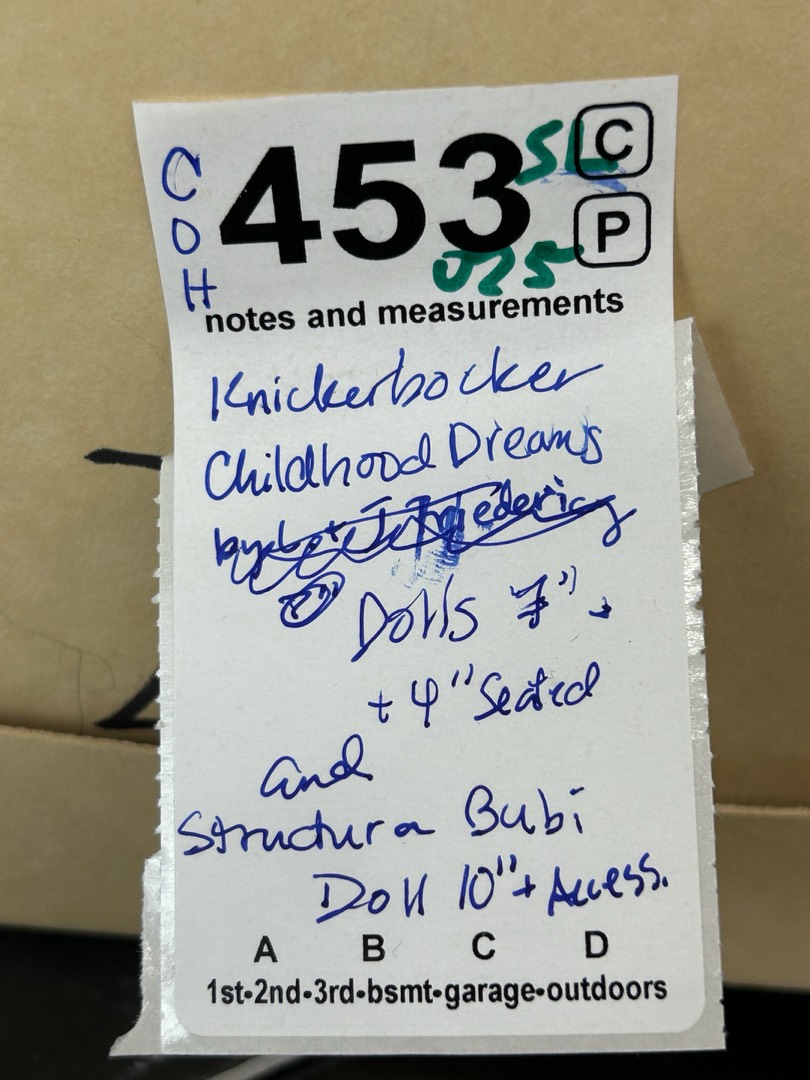 C
O
H
453
SL
C
P
025
notes and measurements
Knickerbocker
Childhood Dreams
by
Dolls 7"
+ 4" Seated
and
Structura Bubi
Doll 10" + Access.
A B C D
1st•2nd•3rd•bsmt•garage•outdoors